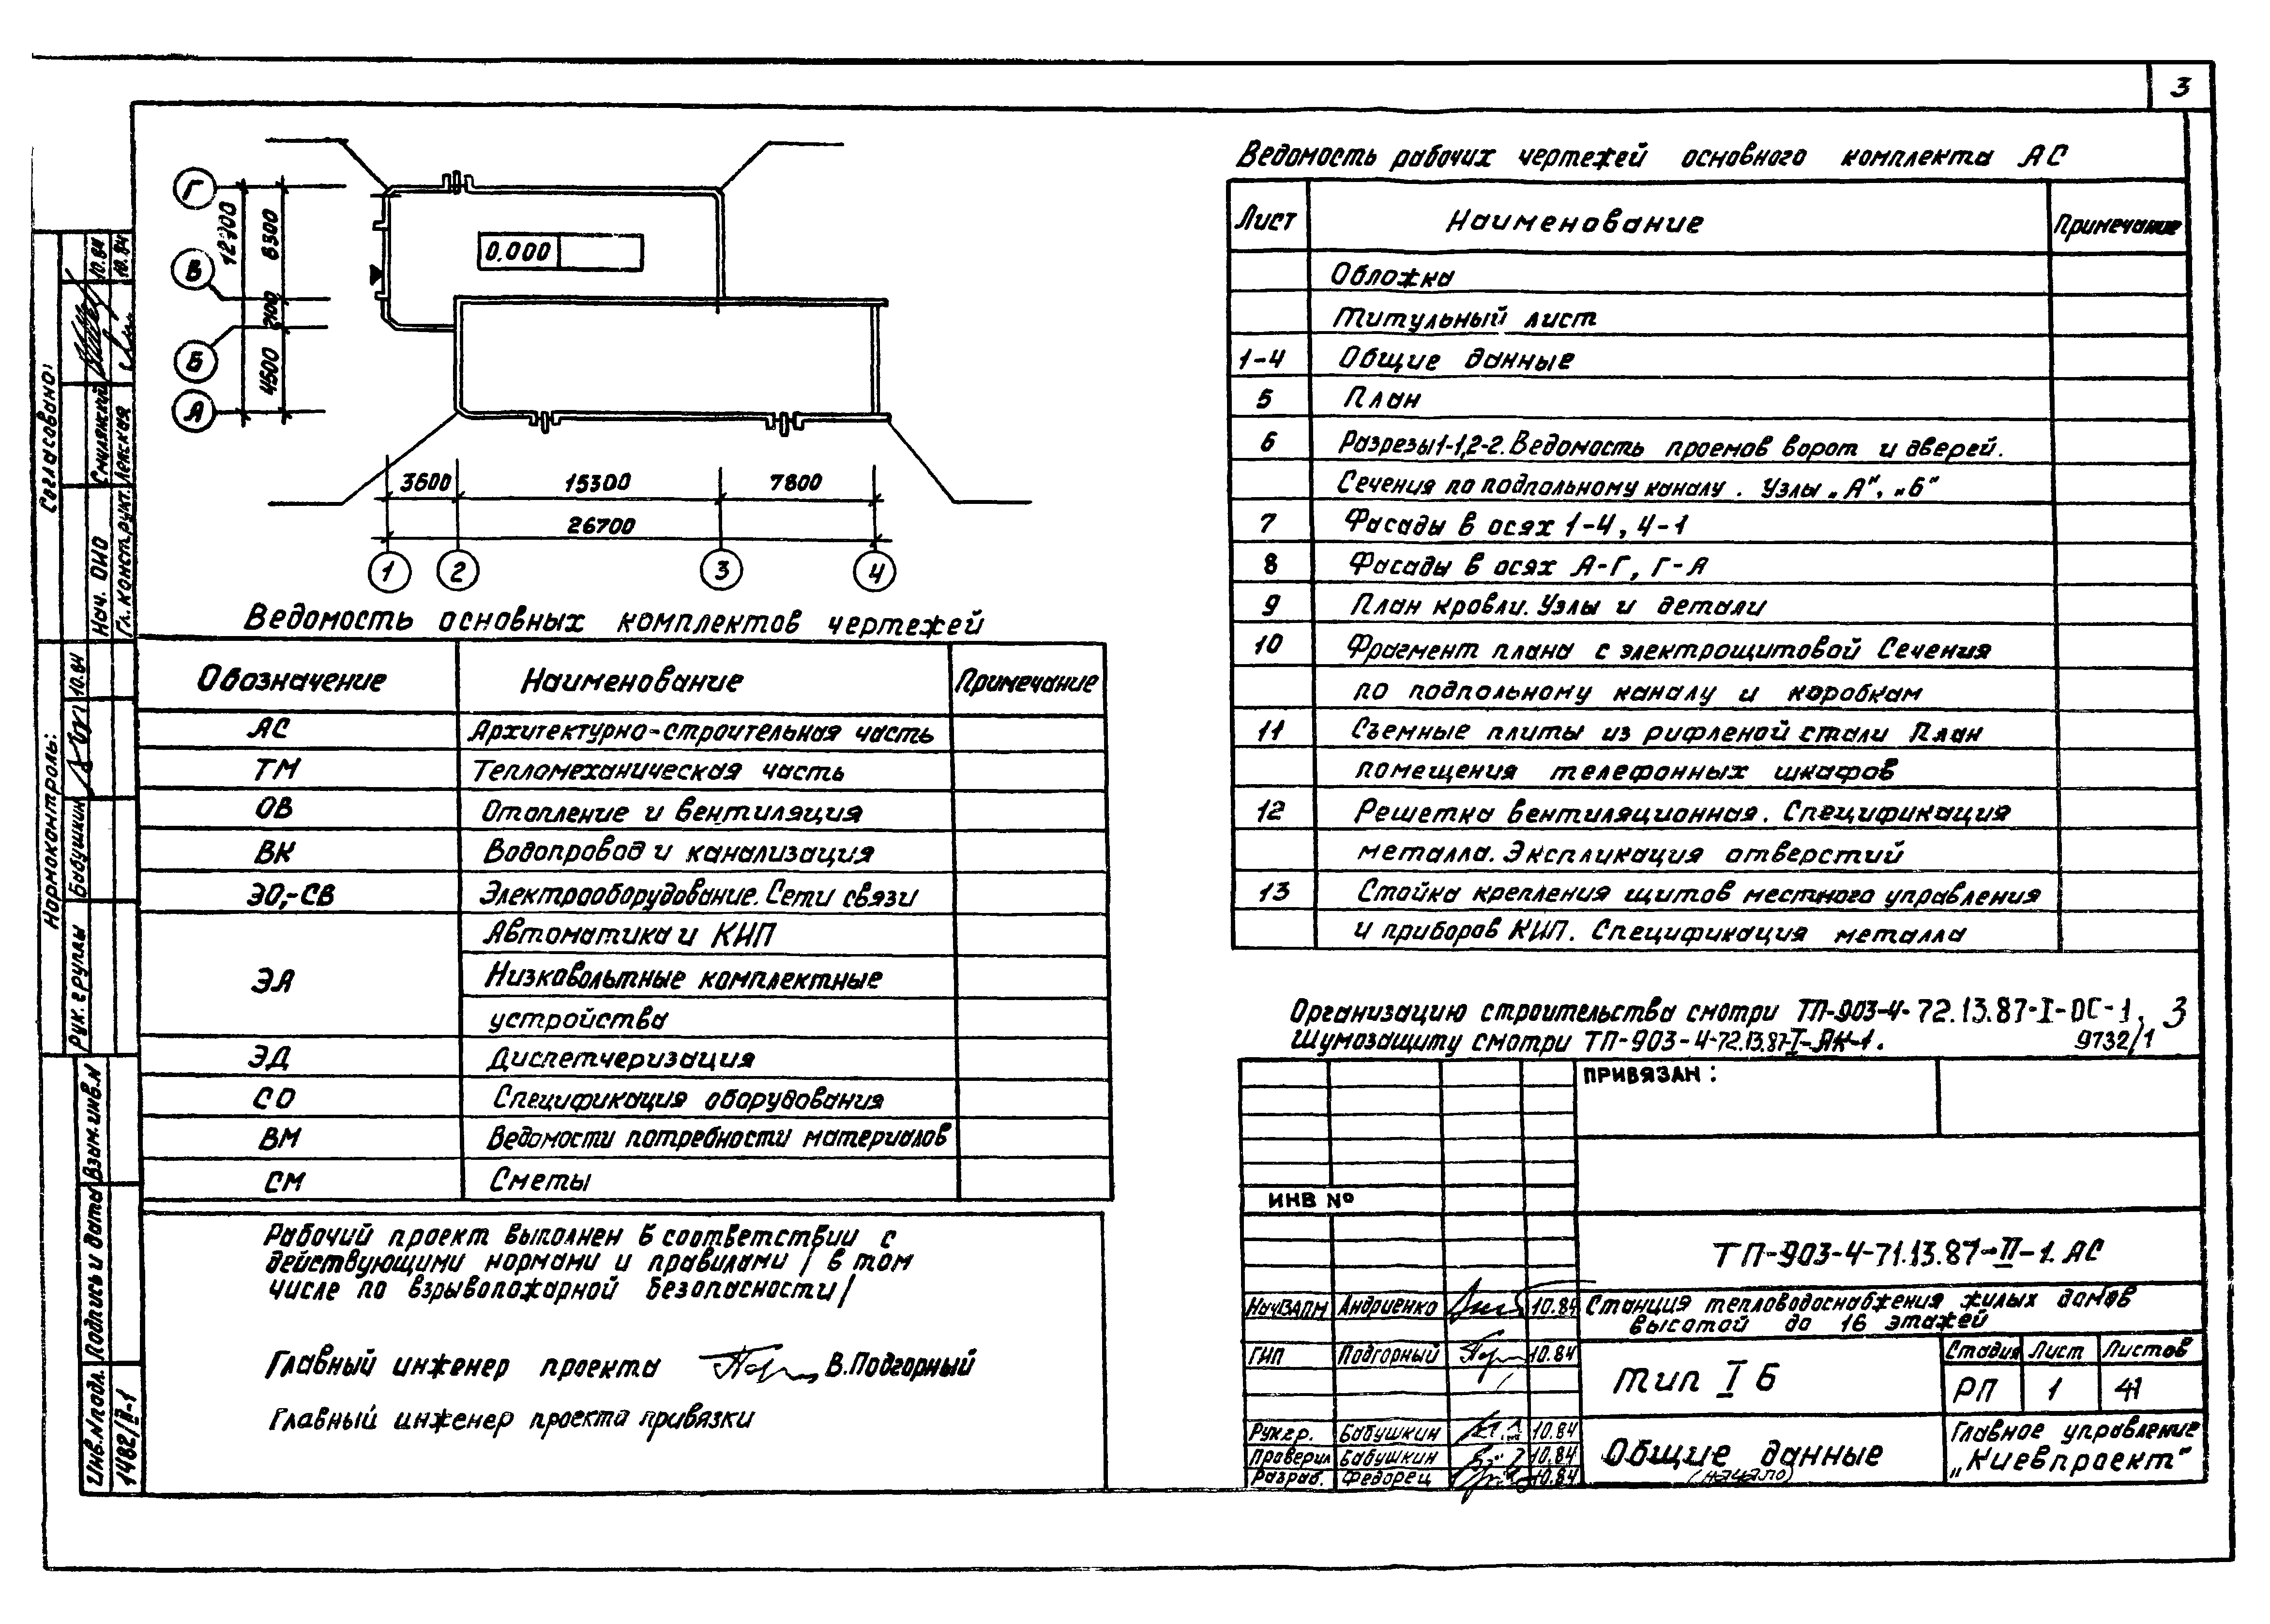 3
Г
В
Б
А
12900
8300
2100
4500
0,000
3600
15300
7800
26700
1
2
3
4
Ведомость основных комплектов чертежей
Обозначение Наименование Примечание
АС Архитектурно-строительная часть
ТМ Тепломеханическая часть
ОВ Отопление и вентиляция
ВК Водопровод и канализация
ЭО,-СВ Электрооборудование. Сети связи
Автоматика и КИП
ЭА Низковольтные комплектные
устройства
ЭД Диспетчеризация
СО Спецификация оборудования
ВМ Ведомости потребности материалов
СМ Сметы
Рабочий проект выполнен в соответствии с
действующими нормами и правилами / в том
числе по взрывопожарной безопасности/
Главный инженер проекта В.Подгорный
Главный инженер проекта привязки
Ведомость рабочих чертежей основного комплекта АС
Лист Наименование Примечание
Обложка
Титульный лист
1-4 Общие данные
5 План
6 Разрезы 1-1,2-2. Ведомость проемов ворот и дверей.
Сечения по подпольному каналу. Узлы „А", „Б"
7 Фасады в осях 1-4, 4-1
8 Фасады в осях А-Г, Г-А
9 План кровли. Узлы и детали
10 Фрагмент плана с электрощитовой Сечения
по подпольному каналу и коробкам
11 Съемные плиты из рифленой стали План
помещения телефонных шкафов
12 Решетка вентиляционная. Спецификация
металла. Экспликация отверстий
13 Стойка крепления щитов местного управления
и приборов КИП. Спецификация металла
Организацию строительства смотри ТП-903-4-72.13.87-I-ОС-1. 3
Шумозащиту смотри ТП-903-4-72.13.87-I-АК-1. 9732/1
ПРИВЯЗАН:
ИНВ №
ТП-903-4-71.13.87-II-1.АС
НачВАПМ Андриенко 10.84
Станция тепловодоснабжения жилых домов
высотой до 16 этажей
ГИП Подгорный 10.84
тип I Б
Стадия Лист Листов
РП 1 41
Рук.гр. Бабушкин 10.84
Проверил Бабушкин 10.84
Разраб. Федорец 10.84
Общие данные
(начало)
Главное управление
„Киевпроект"
Согласовано:
Нач. ОИО Смилянский 10.84
Гл. конструкт. Лекская 10.84
Нормоконтроль:
Рук. группы Бабушкин 10.84
Взам.инв.N
Подпись и дата
Инв.N подл.
1482/II-1